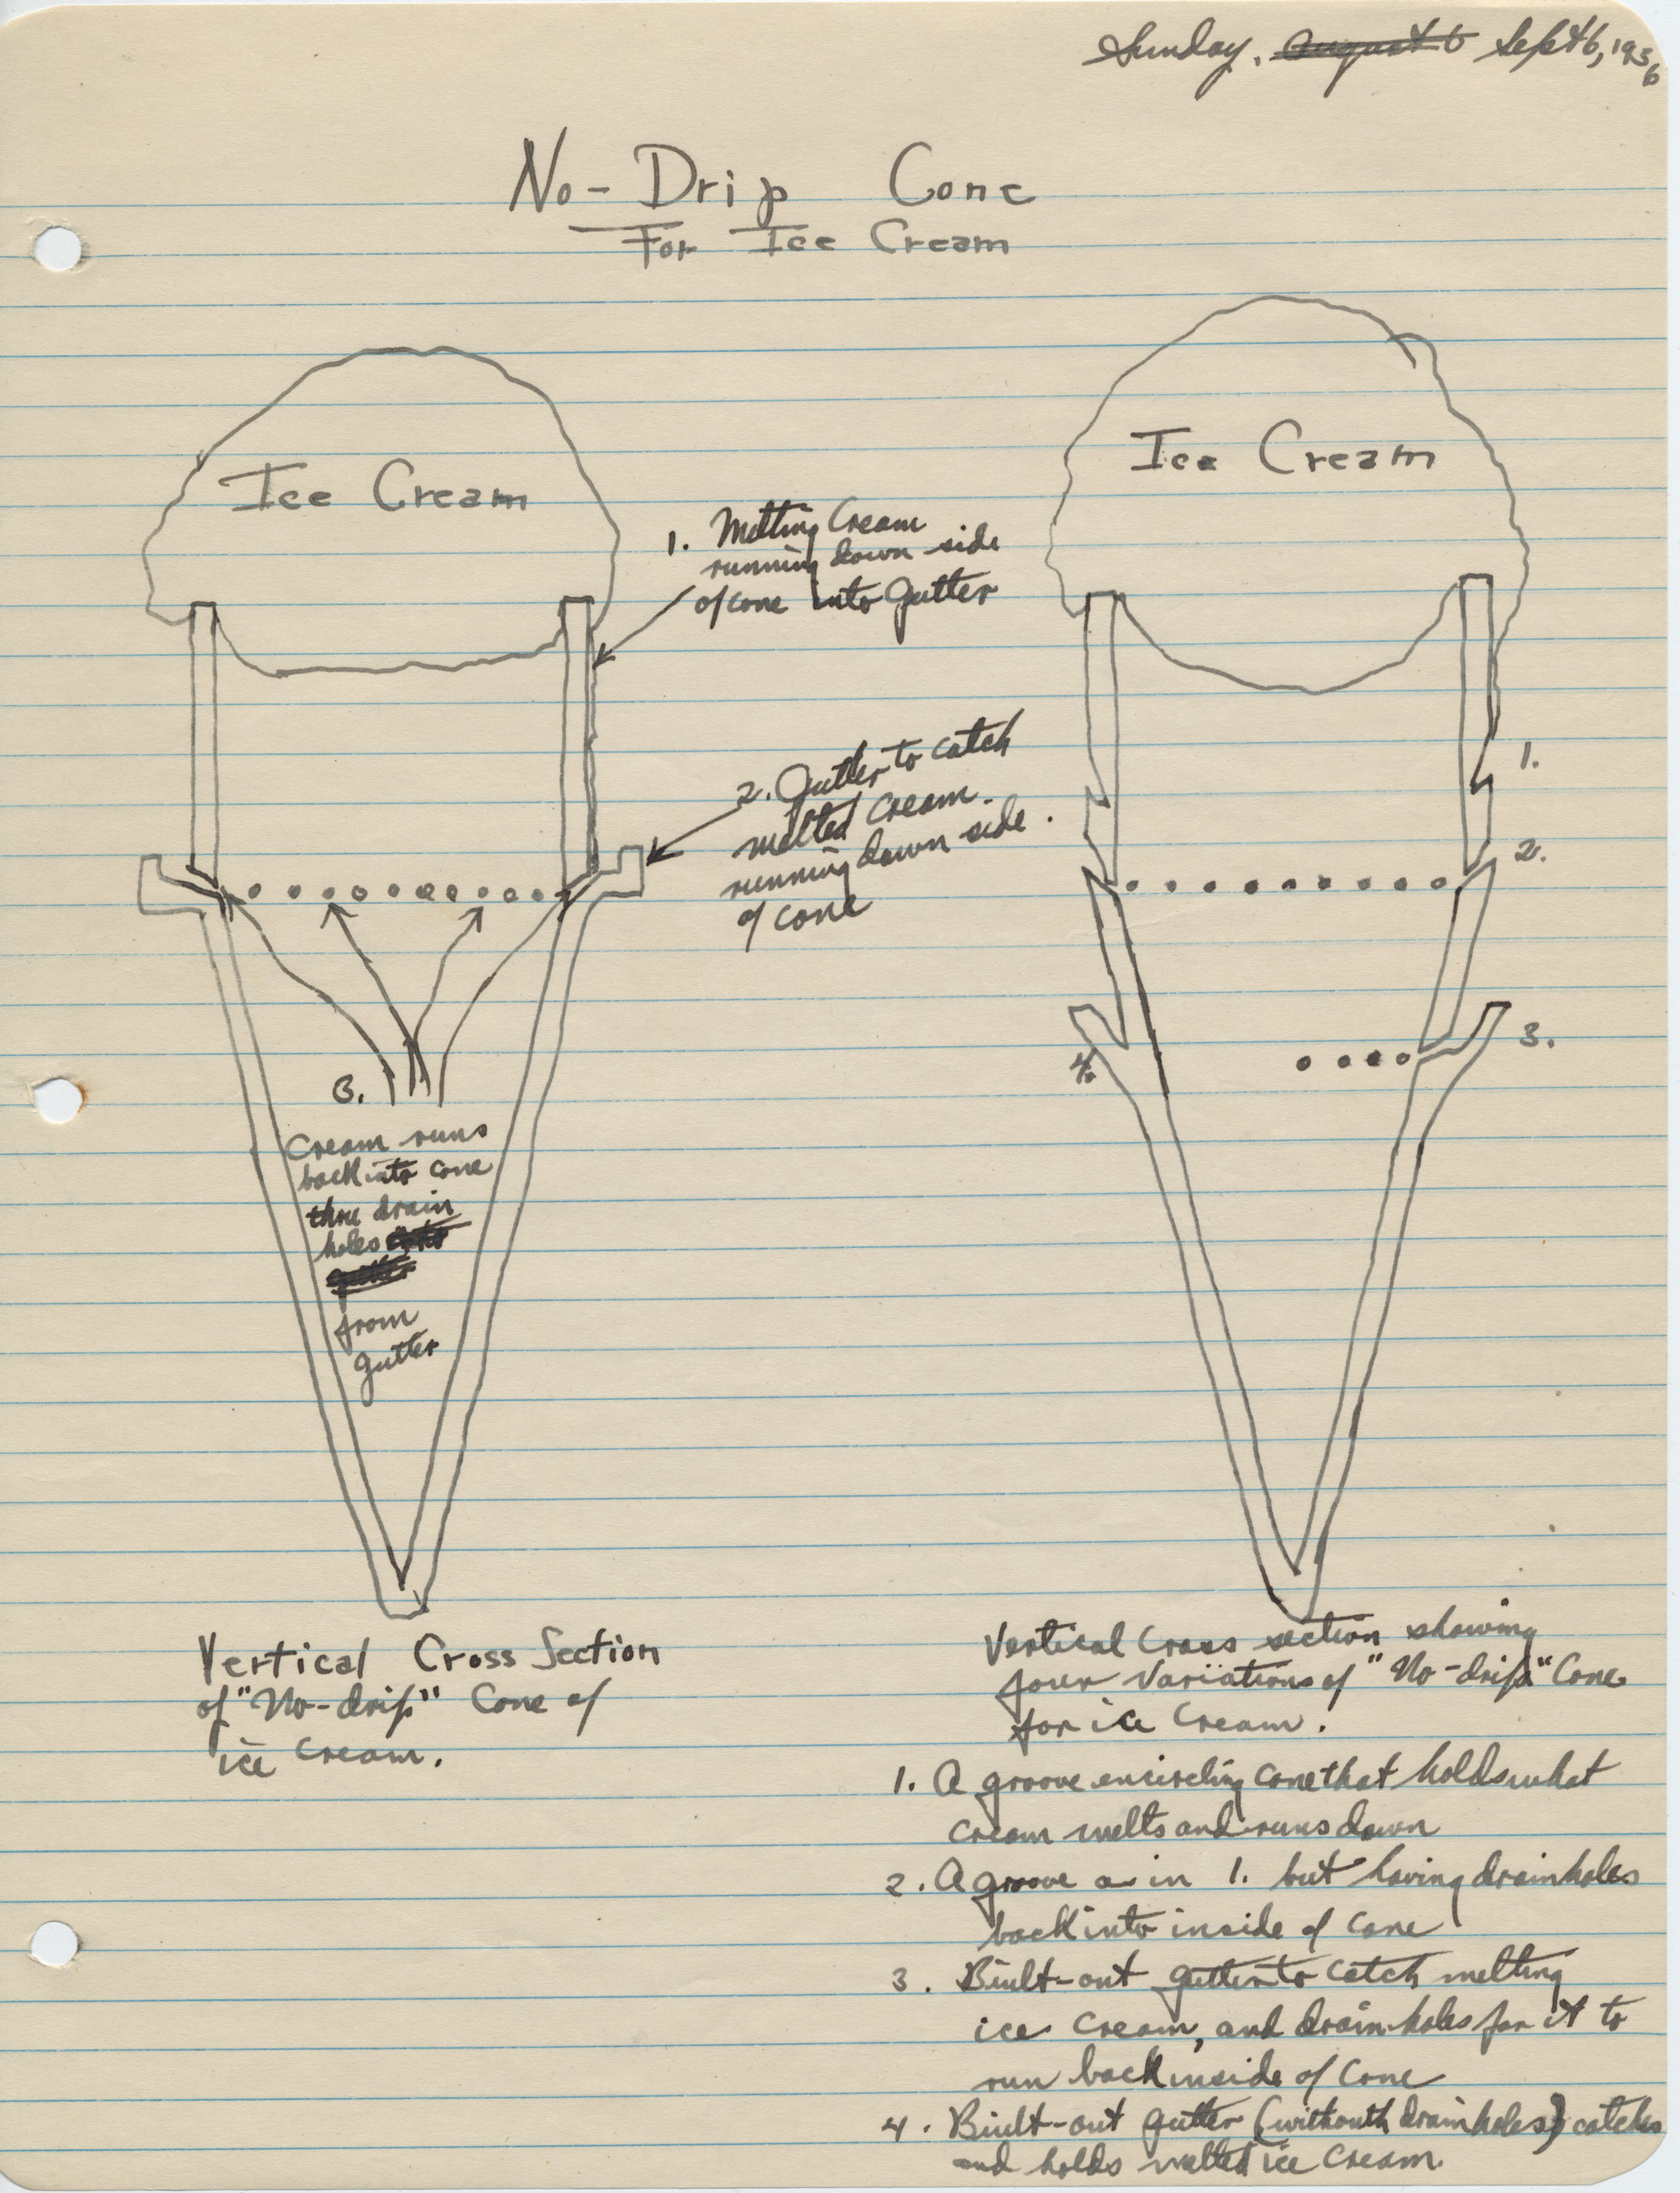 Sunday, August 6 Sept 6, 1936
No-Drip Cone
For Ice Cream
Ice Cream
Ice Cream
1. Melting Cream
running down side
of cone into Gutter
2. Gutter to catch
melted cream.
running down side.
of cone
1.
2.
3.
4.
3.
Cream runs
back into cone
thru drain
holes
from
gutter
Vertical Cross Section
of "No-drip" Cone of
ice cream.
Vertical Cross section showing
four variations of "No-drip" Cone
for ice cream.
1. A groove encircling cone that holds what
cream melts and runs down
2. A groove as in 1. but having drain holes
back into inside of cone
3. Built-out gutter to catch melting
ice cream, and drain holes for it to
run back inside of cone
4. Built-out gutter (without drain holes) catches
and holds melted ice cream.